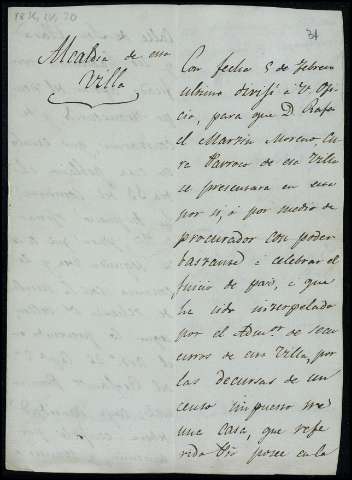 34
Alcaldia de esa
Villa
Con fecha 5 de Febrero
ultimo dirisí a V. Ofi
cio, para que D. Rafa
el Martin Moreno, Cu
ra Parroco de esa Villa
se presentara en esta
por si, ó por medio de
procurador con poder
bastante á celebrar el
Juicio de paz, á que
ha sido interpelado
por el Adm.or de
de esta Villa, por
las decursas de un
censo impuesto sre
una casa, que refe
rido Sr posee en la